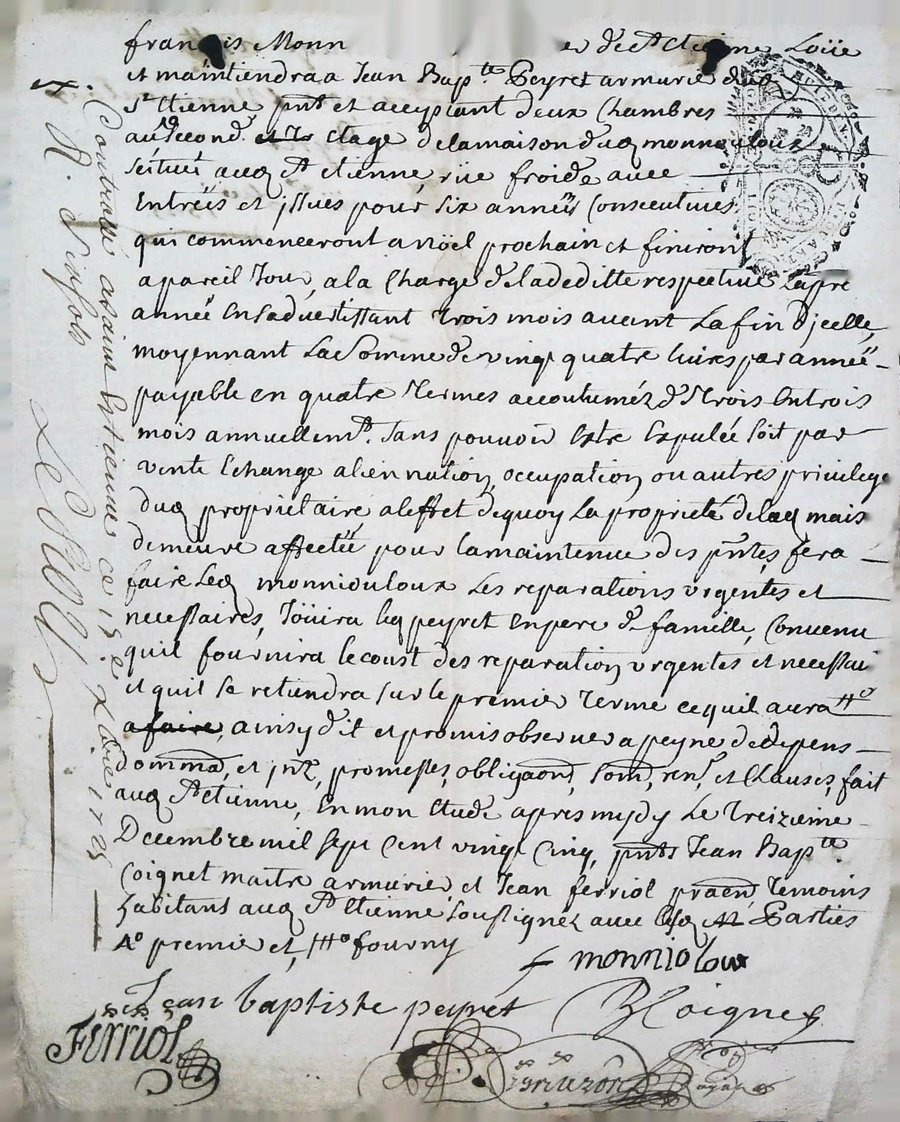 françois Monn de St Etienne Loüe
et maintiendra a Jean Bapte Peyret armurie dud
St Etienne, pnt et acceptant deux Chambres
au Second etage delamaison dud monniouloux
Scituée aud St Etienne, rüe froide avec
Entrées et jssues pour Six années Consecutives
qui commenceront a nöel prochain et finiront
a pareil Jour, a la Charge de la deditte respective
année En Sadvertissant Trois mois avant La fin djcelle,
moyennant La Somme de vingt quatre livres par année
payable en quatre Termes accoutuméz de Trois Entrois
mois annuellemt. Sans pouvoir Estre Expulée Soit par
vente Echange aliennation, occupation ou autres privilege
dud propriétaire aleffet dequoy La proprieté delad mais
demeure affectée pour lamaintenue des pntes, fera
faire Led monniouloux Les reparations urgentes et
necessaires, Joüira led peyret Enpere de famille, Convenu
quil fournira le coust des reparation urgentes et necessai
et quil Se retiendra Sur le premier Terme cequil aura
a faire, ainsy dit et promis observer a peyne de depens
domma, et jnt, promesses, obligaons, Soms, rens, et Clauses, fait
aud St Etienne, En mon Etude apres mydy Le Treizieme
Decembre mil Sept Cent vingt Cinq, pnts Jean Bapte
Coignet maitre armurier, et Jean ferriol praen, Temoins
habitans aud St Etienne Soussignez avec Parties
premier et fourny
monniolou
Jean baptiste peyret
B Coignet
FERRIOL
Controllé asaint Estienne ce 15e xbre 1725
R Six sols